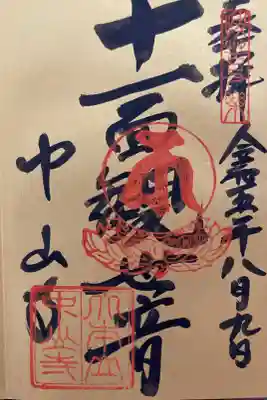 奉拝
令和五年八月九日
十一面観世音
中山寺
中山寺